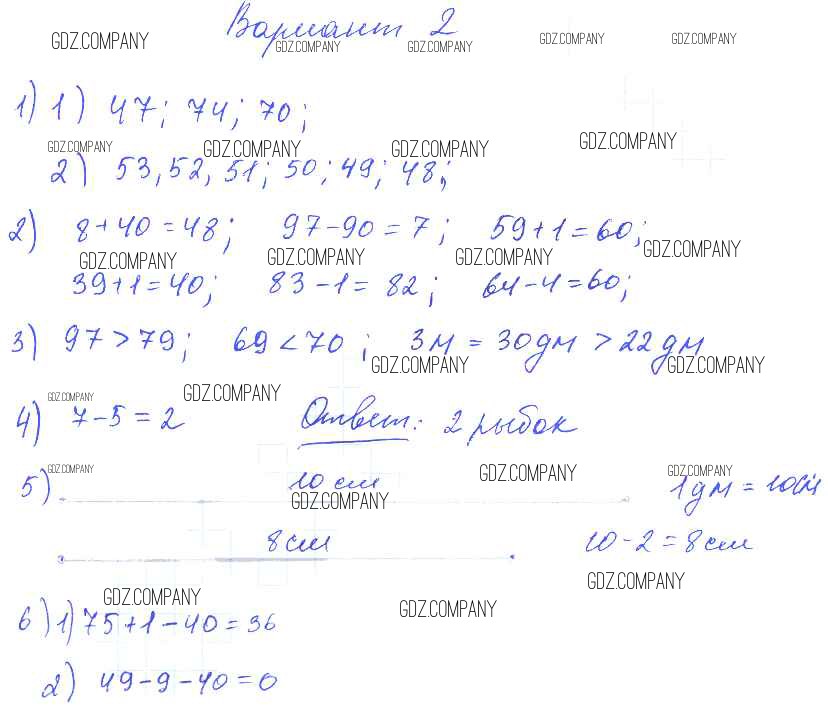 Вариант 2
GDZ.COMPANY GDZ.COMPANY GDZ.COMPANY GDZ.COMPANY GDZ.COMPANY
1) 1) 47; 74; 70;
GDZ.COMPANY GDZ.COMPANY GDZ.COMPANY GDZ.COMPANY
2) 53, 52, 51; 50; 49; 48;
2) 8+40=48; 97-90=7; 59+1=60;
GDZ.COMPANY GDZ.COMPANY GDZ.COMPANY GDZ.COMPANY
39+1=40; 83-1=82; 64-4=60;
3) 97>79; 69<70; 3м=30дм>22дм
GDZ.COMPANY GDZ.COMPANY
GDZ.COMPANY GDZ.COMPANY
4) 7-5=2 Ответ: 2 рыбок
GDZ.COMPANY GDZ.COMPANY GDZ.COMPANY
5) 10 см 1дм=10см
GDZ.COMPANY
8 см 10-2=8 см
GDZ.COMPANY
GDZ.COMPANY GDZ.COMPANY
6) 1) 75+1-40=36
2) 49-9-40=0